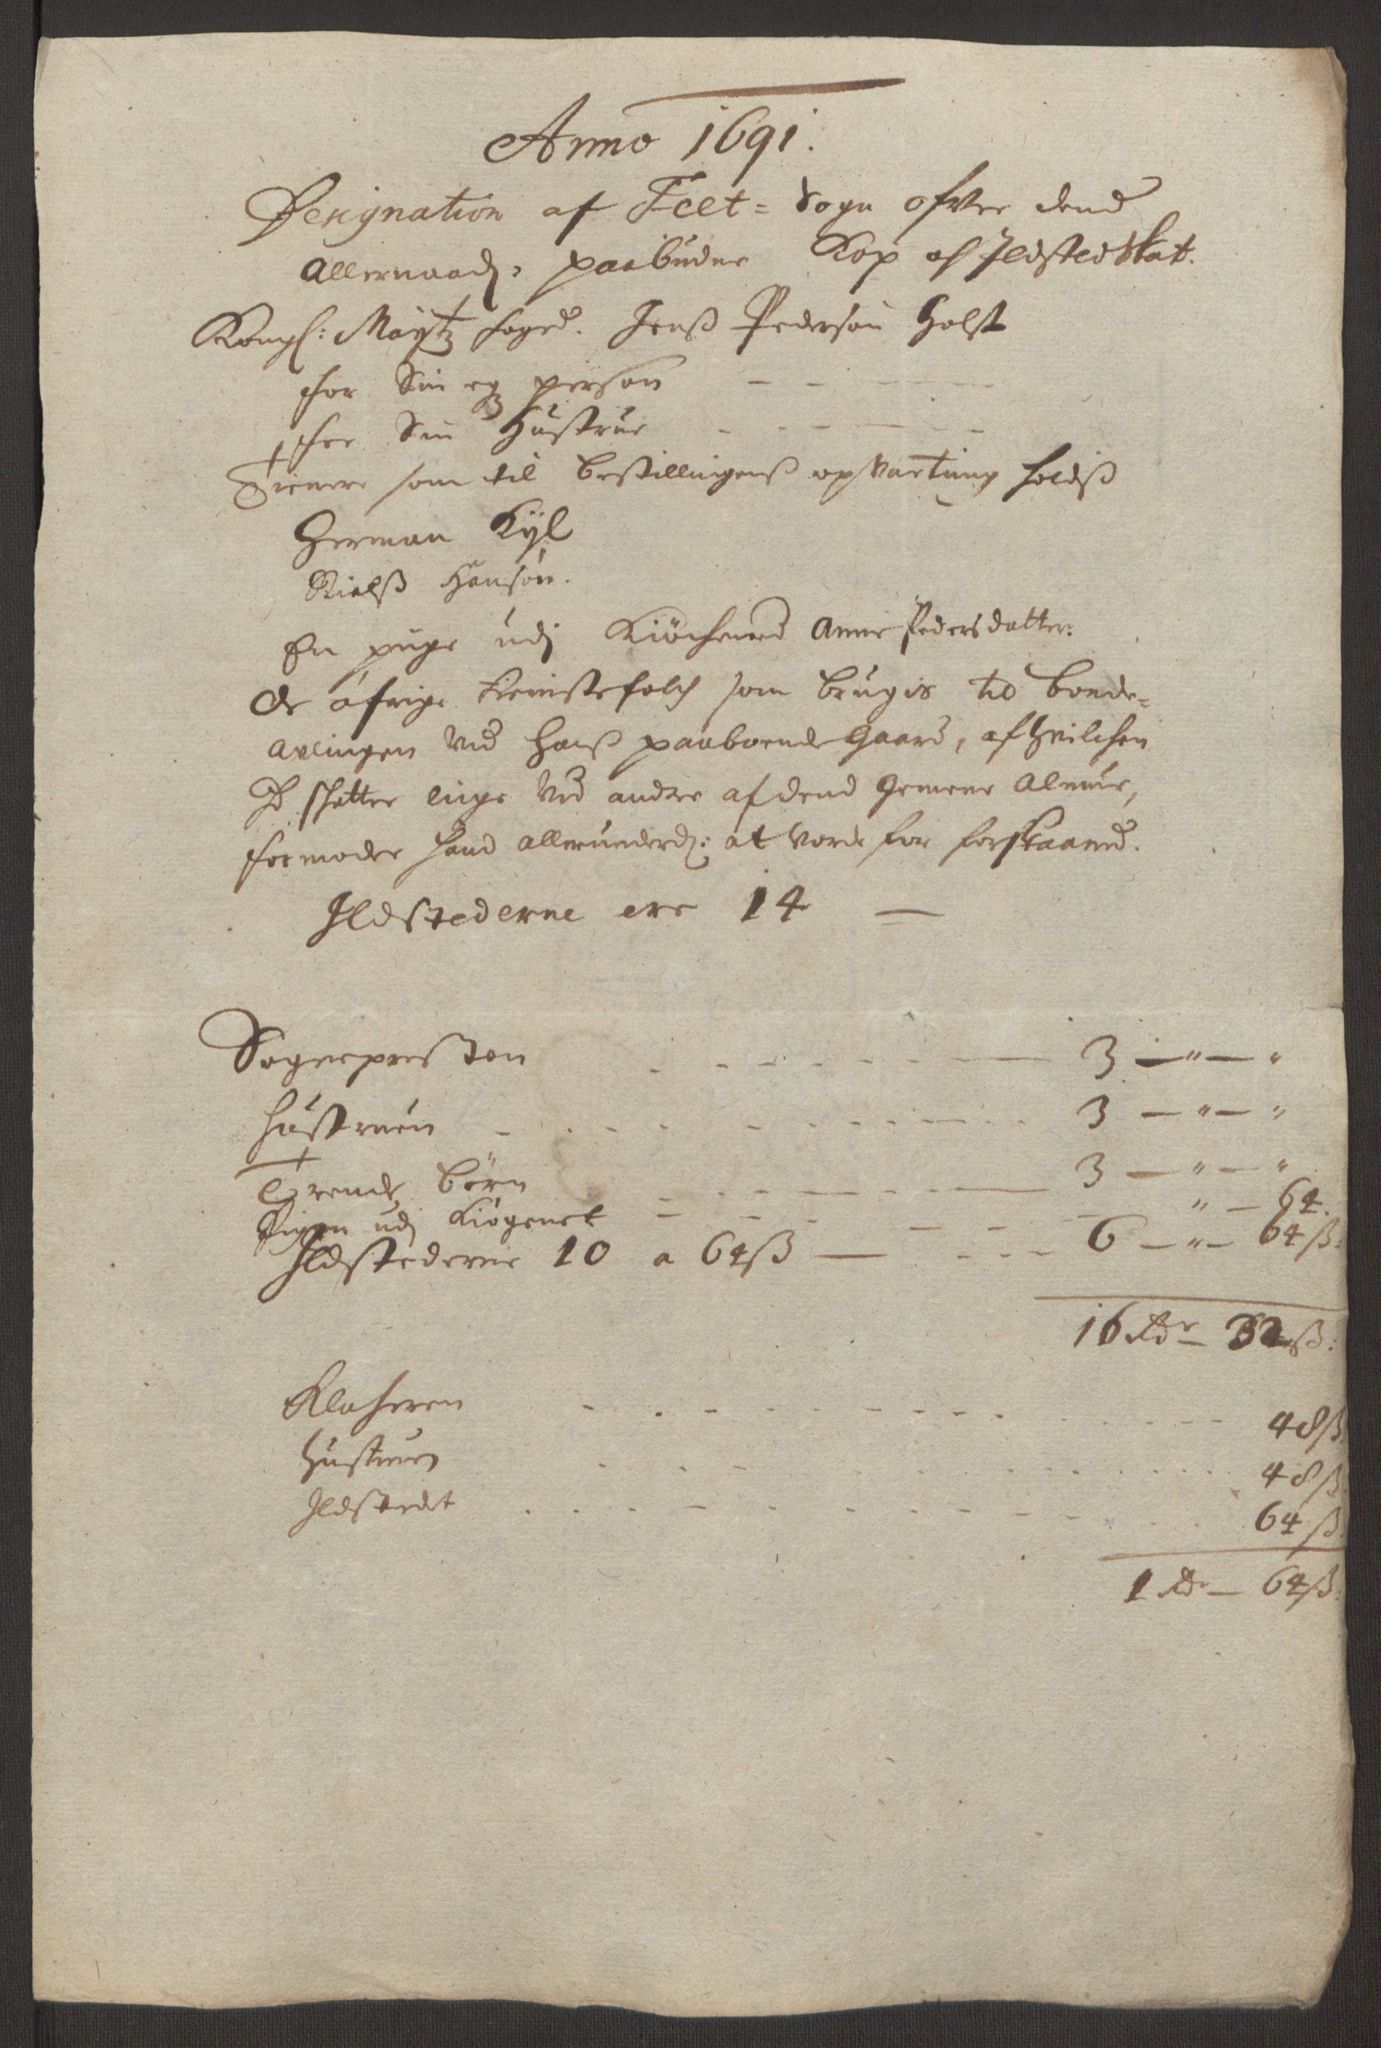 Anno 1691.
Designation af Feet= Sogn ofver dend
Allernaad: paabudne Kop af Ildsted Skat.
Kongl: Maÿtz foged. Jenß Pedersøn Holst
for Sin eg person
for Sin Hustrue
Tienere som til bestillingenß opvartning holdiß
Herman Kÿl
Nielß Hansøn.
En pige udj Kiöchened Anne Pedersdatter.
de öfrige tieniste folch som brugis til bonde=
Avlingen ved hanß paaboende Gaard, af hvilchen
Jd schatter liige ved andre af dend gemene Almue,
formoder hand allerunderd: at vorde for forskaaned.
Ildstederne ere 14 —
Sognepresten 3 — " — "
Hustruen 3 — " — "
Trende börn 3 — " — "
Pigen udj Kiögenet " — 64.
Ildstederne 10 a 64ß — 6 — " — 64ß:
16 Rdr — 32ß:
Klocheren 48ß
Hustruen 48ß
Ildstedet 64ß.
1 Rdr — 64ß: